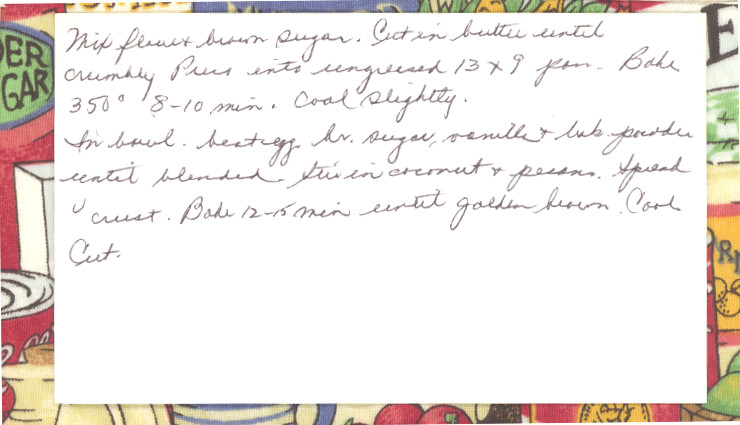 Mix flour & brown sugar. Cut in butter until
crumbly Press into ungreased 13 x 9 pan. Bake
350° 8-10 min. Cool slightly.
In bowl. beat egg, br. sugar, vanilla & bak powder
until blended. Stir in coconut & pecans. Spread
crust. Bake 12-15 min until golden brown. Cool
Cut.
ER
GAR
E